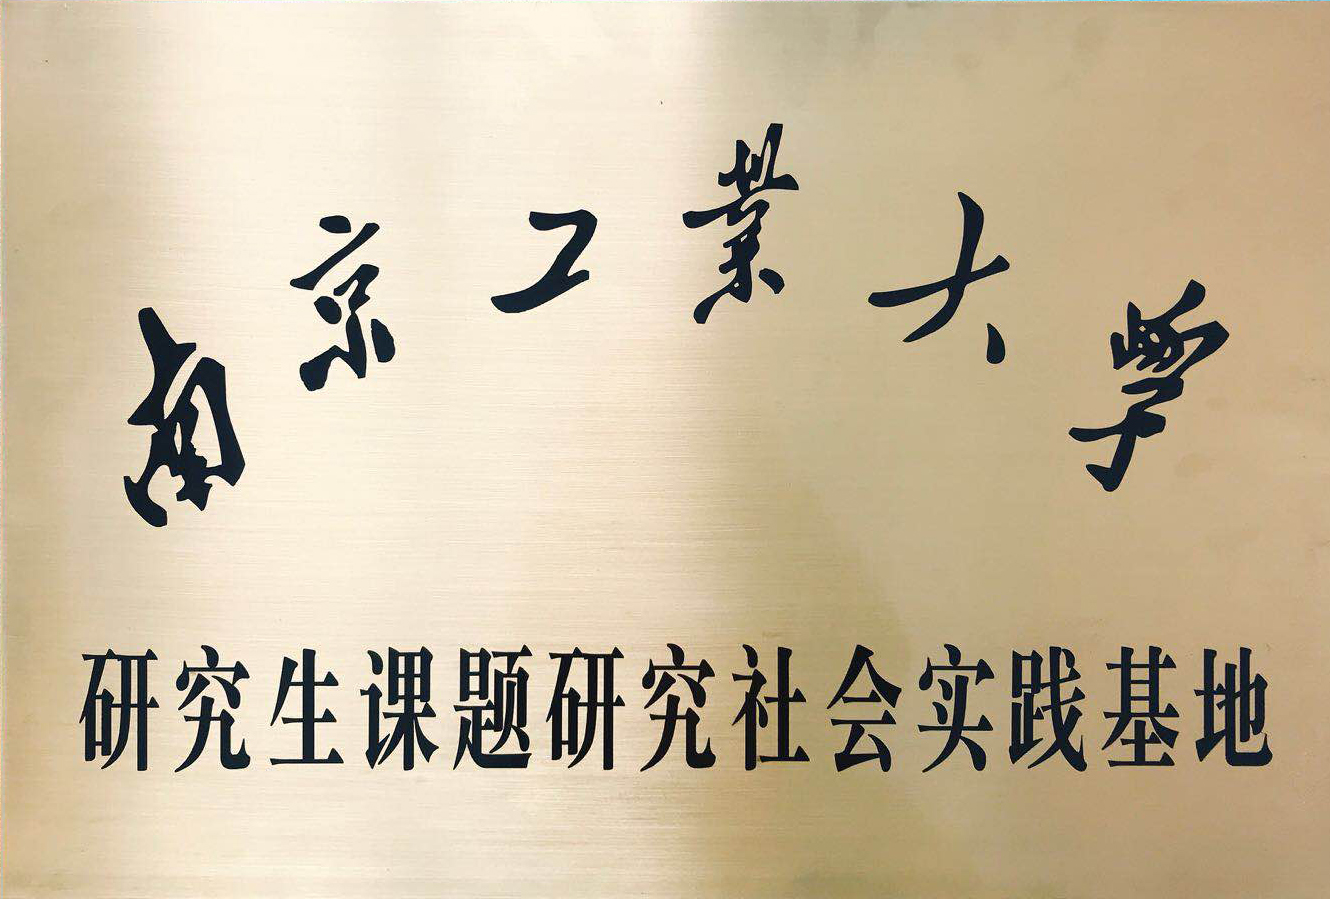 南京工業大学
研究生课题研究社会实践基地